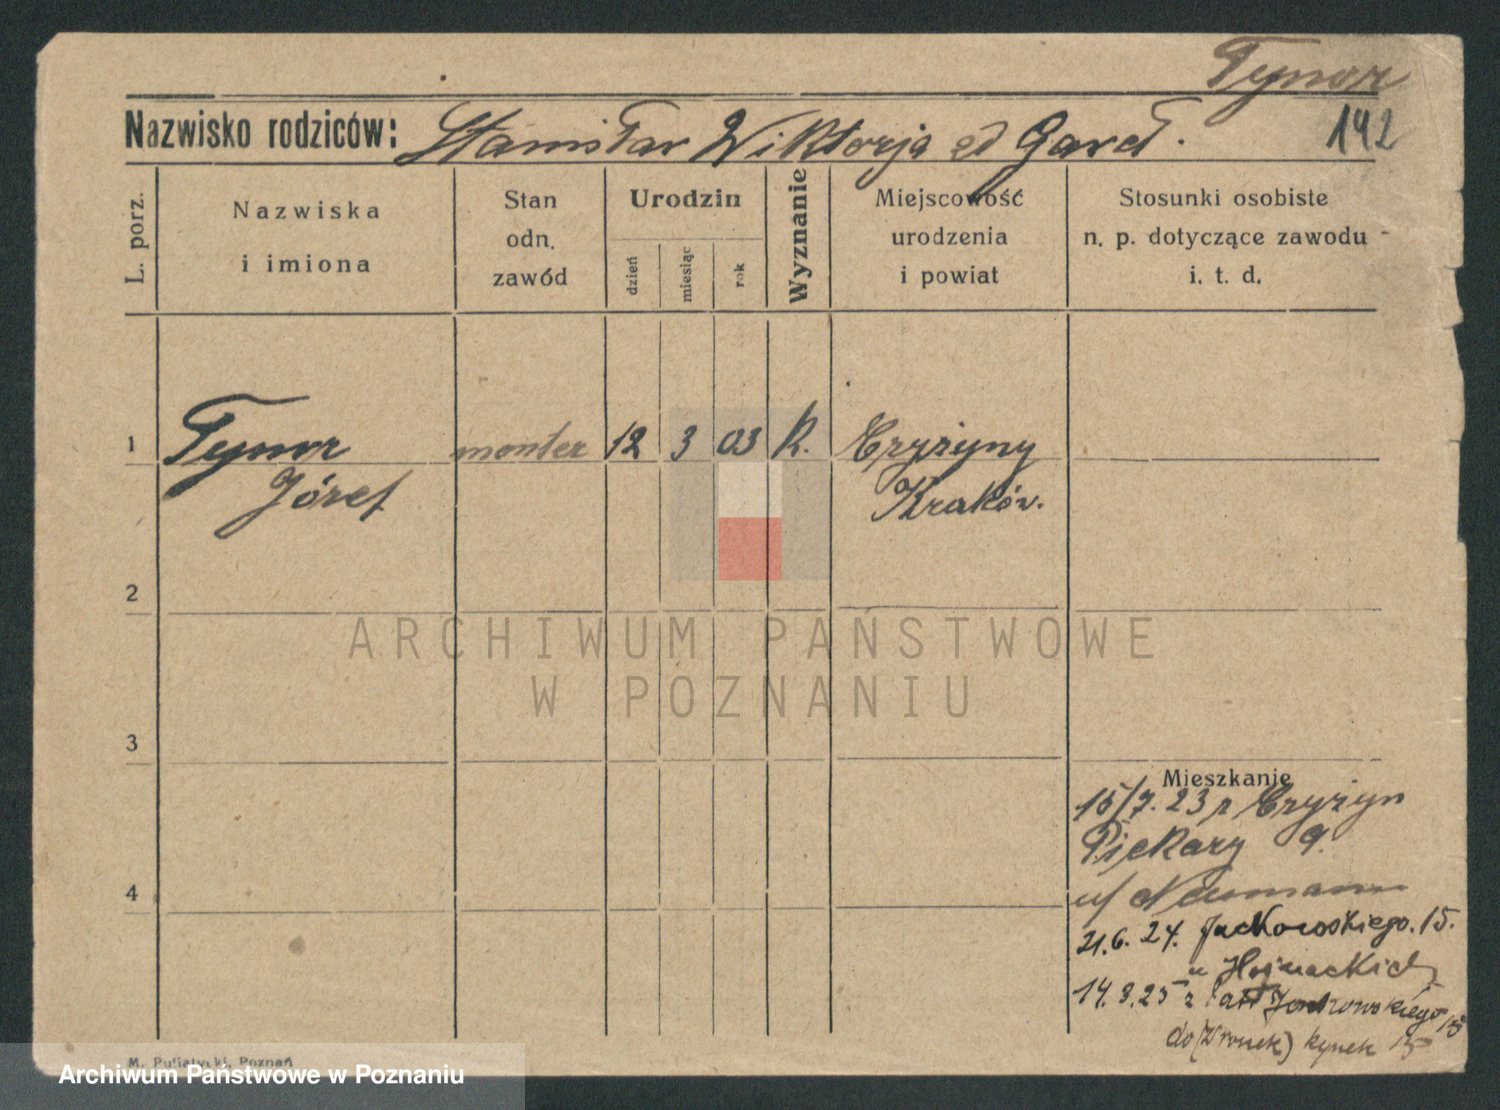 Tynor
142
Nazwisko rodziców: Stanisław Wiktorja
L. porz.
Nazwiska i imiona
Stan odn. zawód
Urodzin
dzień
miesiąc
rok
Wyznanie
Miejscowość urodzenia i powiat
Stosunki osobiste n. p. dotyczące zawodu i. t. d.
1 Tynor monter 12 3 03 R. Czyżyny
Józef Kraków.
2
3
4
ARCHIWUM PAŃSTWOWE
W POZNANIU
Mieszkanie
15/7. 23 z Czyżyn
Piekary 9.
u/ Neumann
21.6. 24. Jackowskiego. 15.
u Hojnackich
do (Wronek) Rynek 15
M. Putiatycki, Poznań
Archiwum Państwowe w Poznaniu